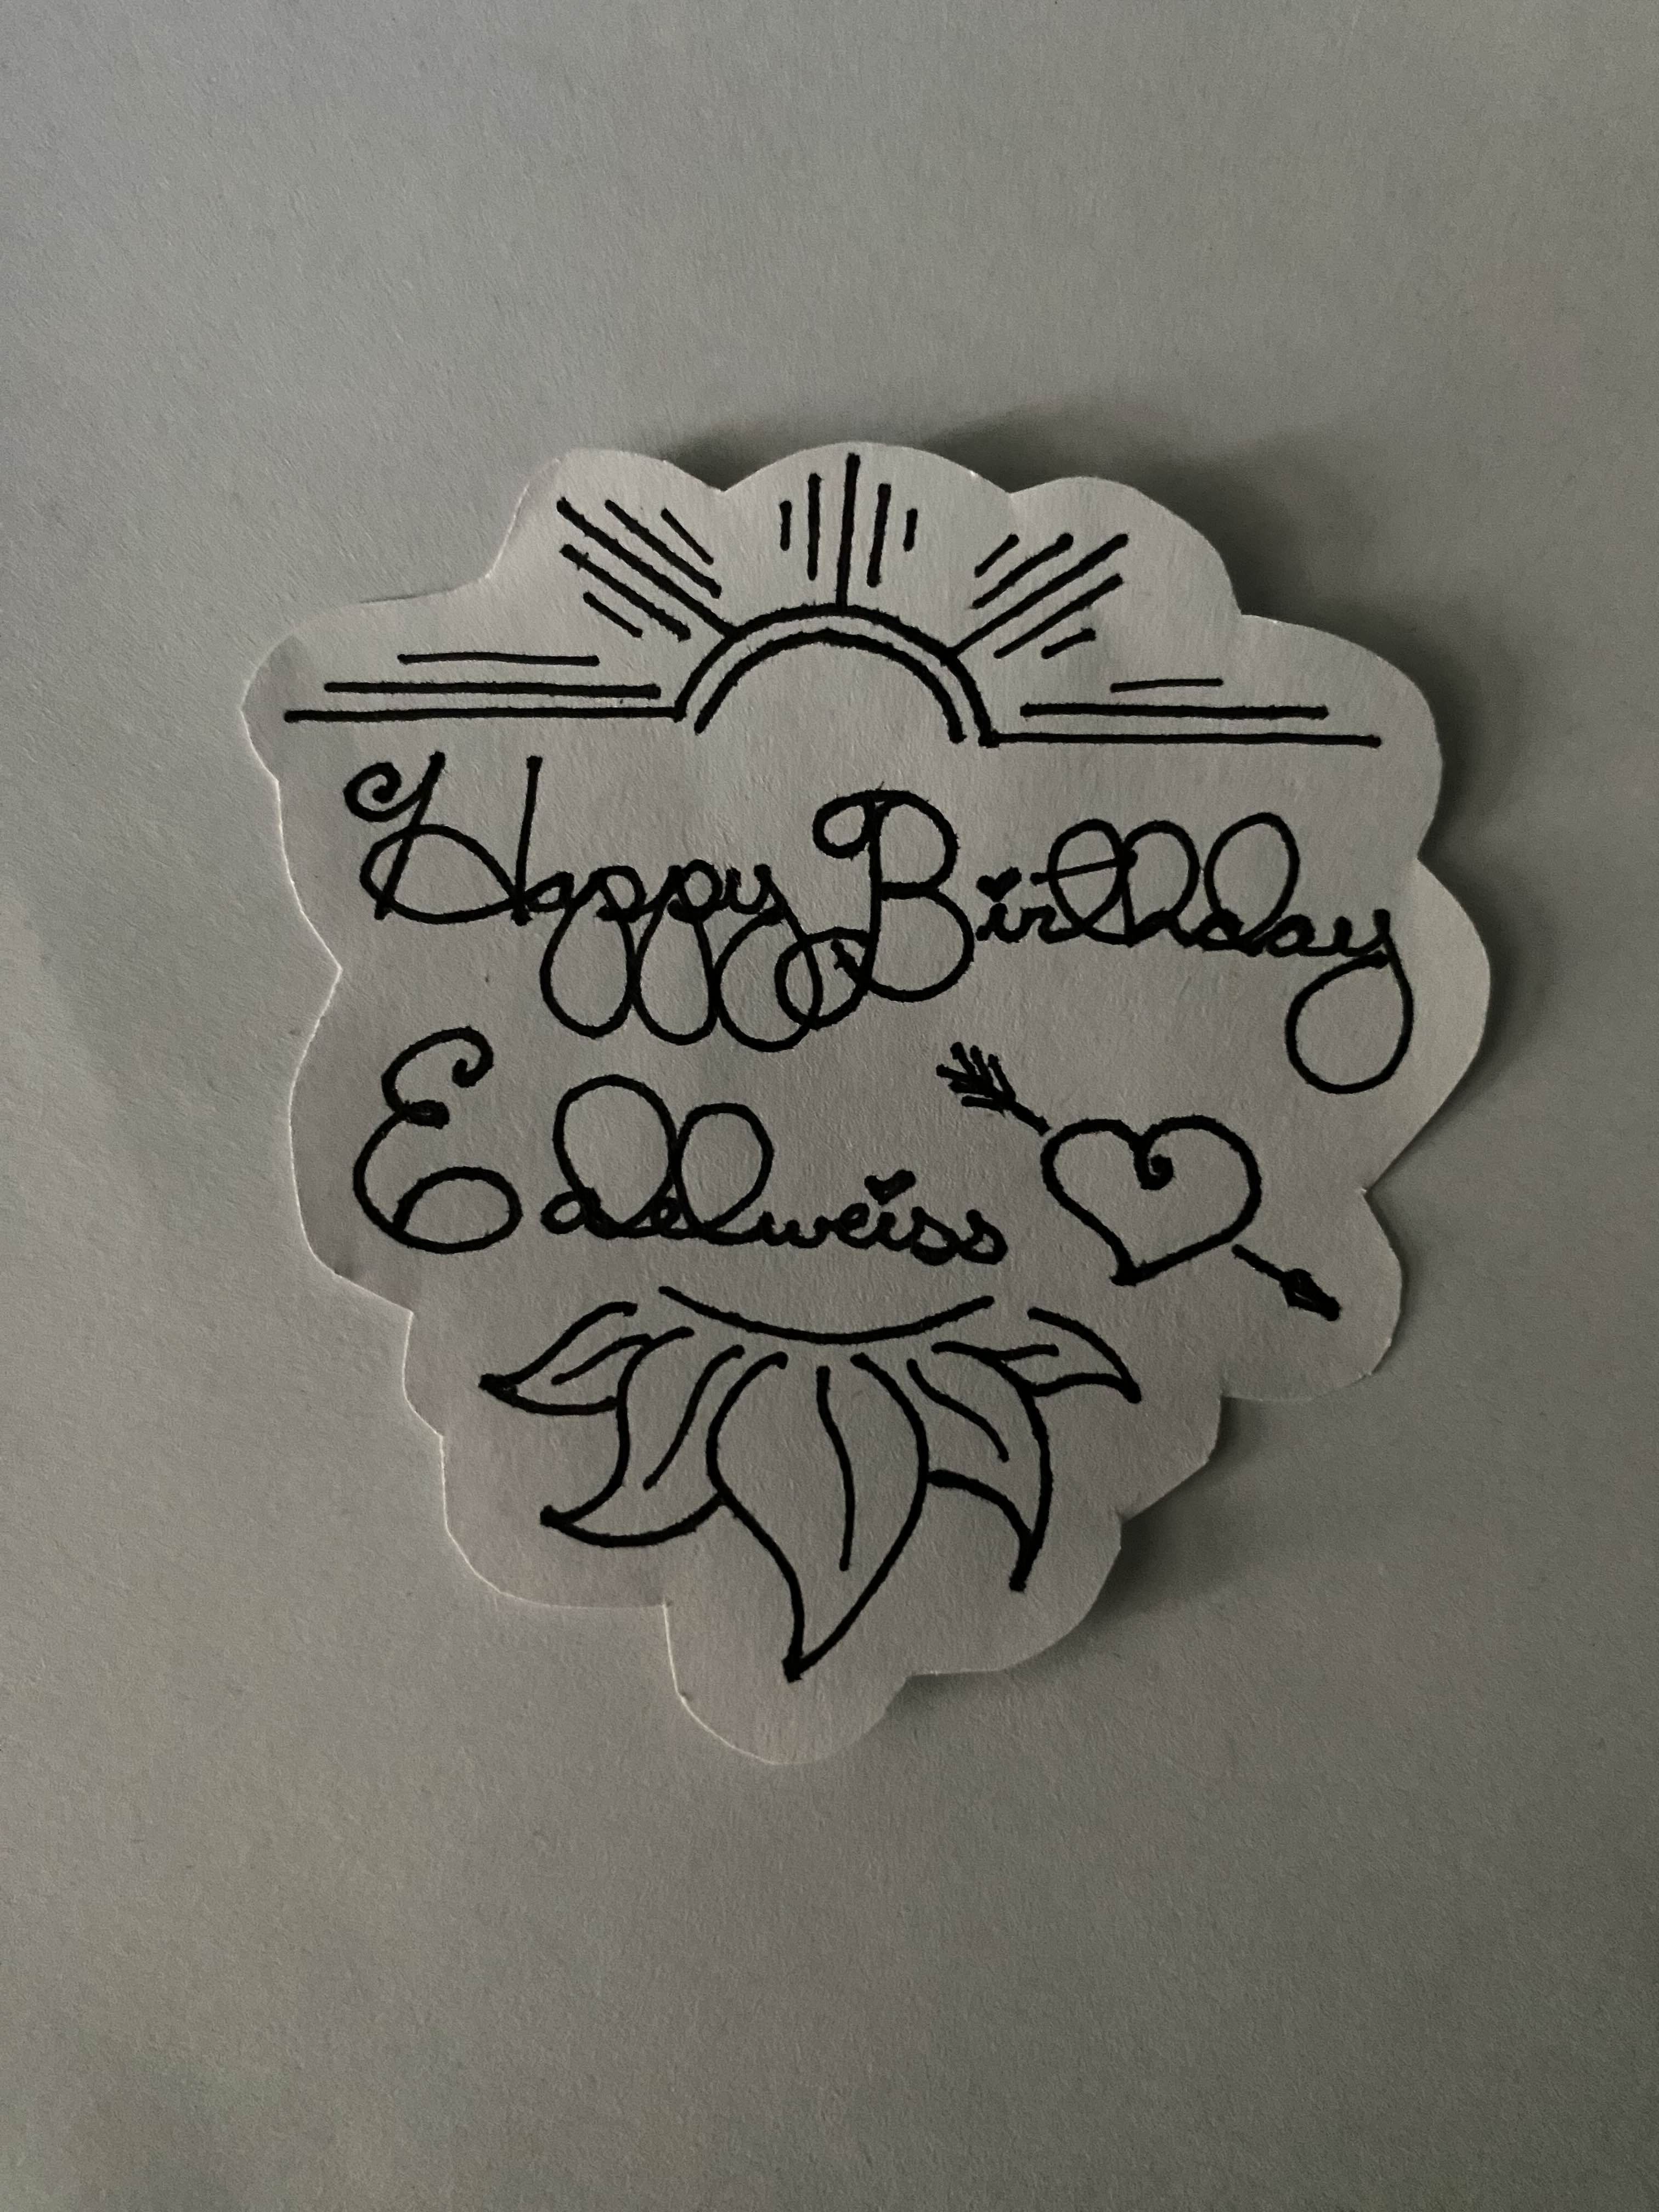 Happy Birthday
Edelweiss